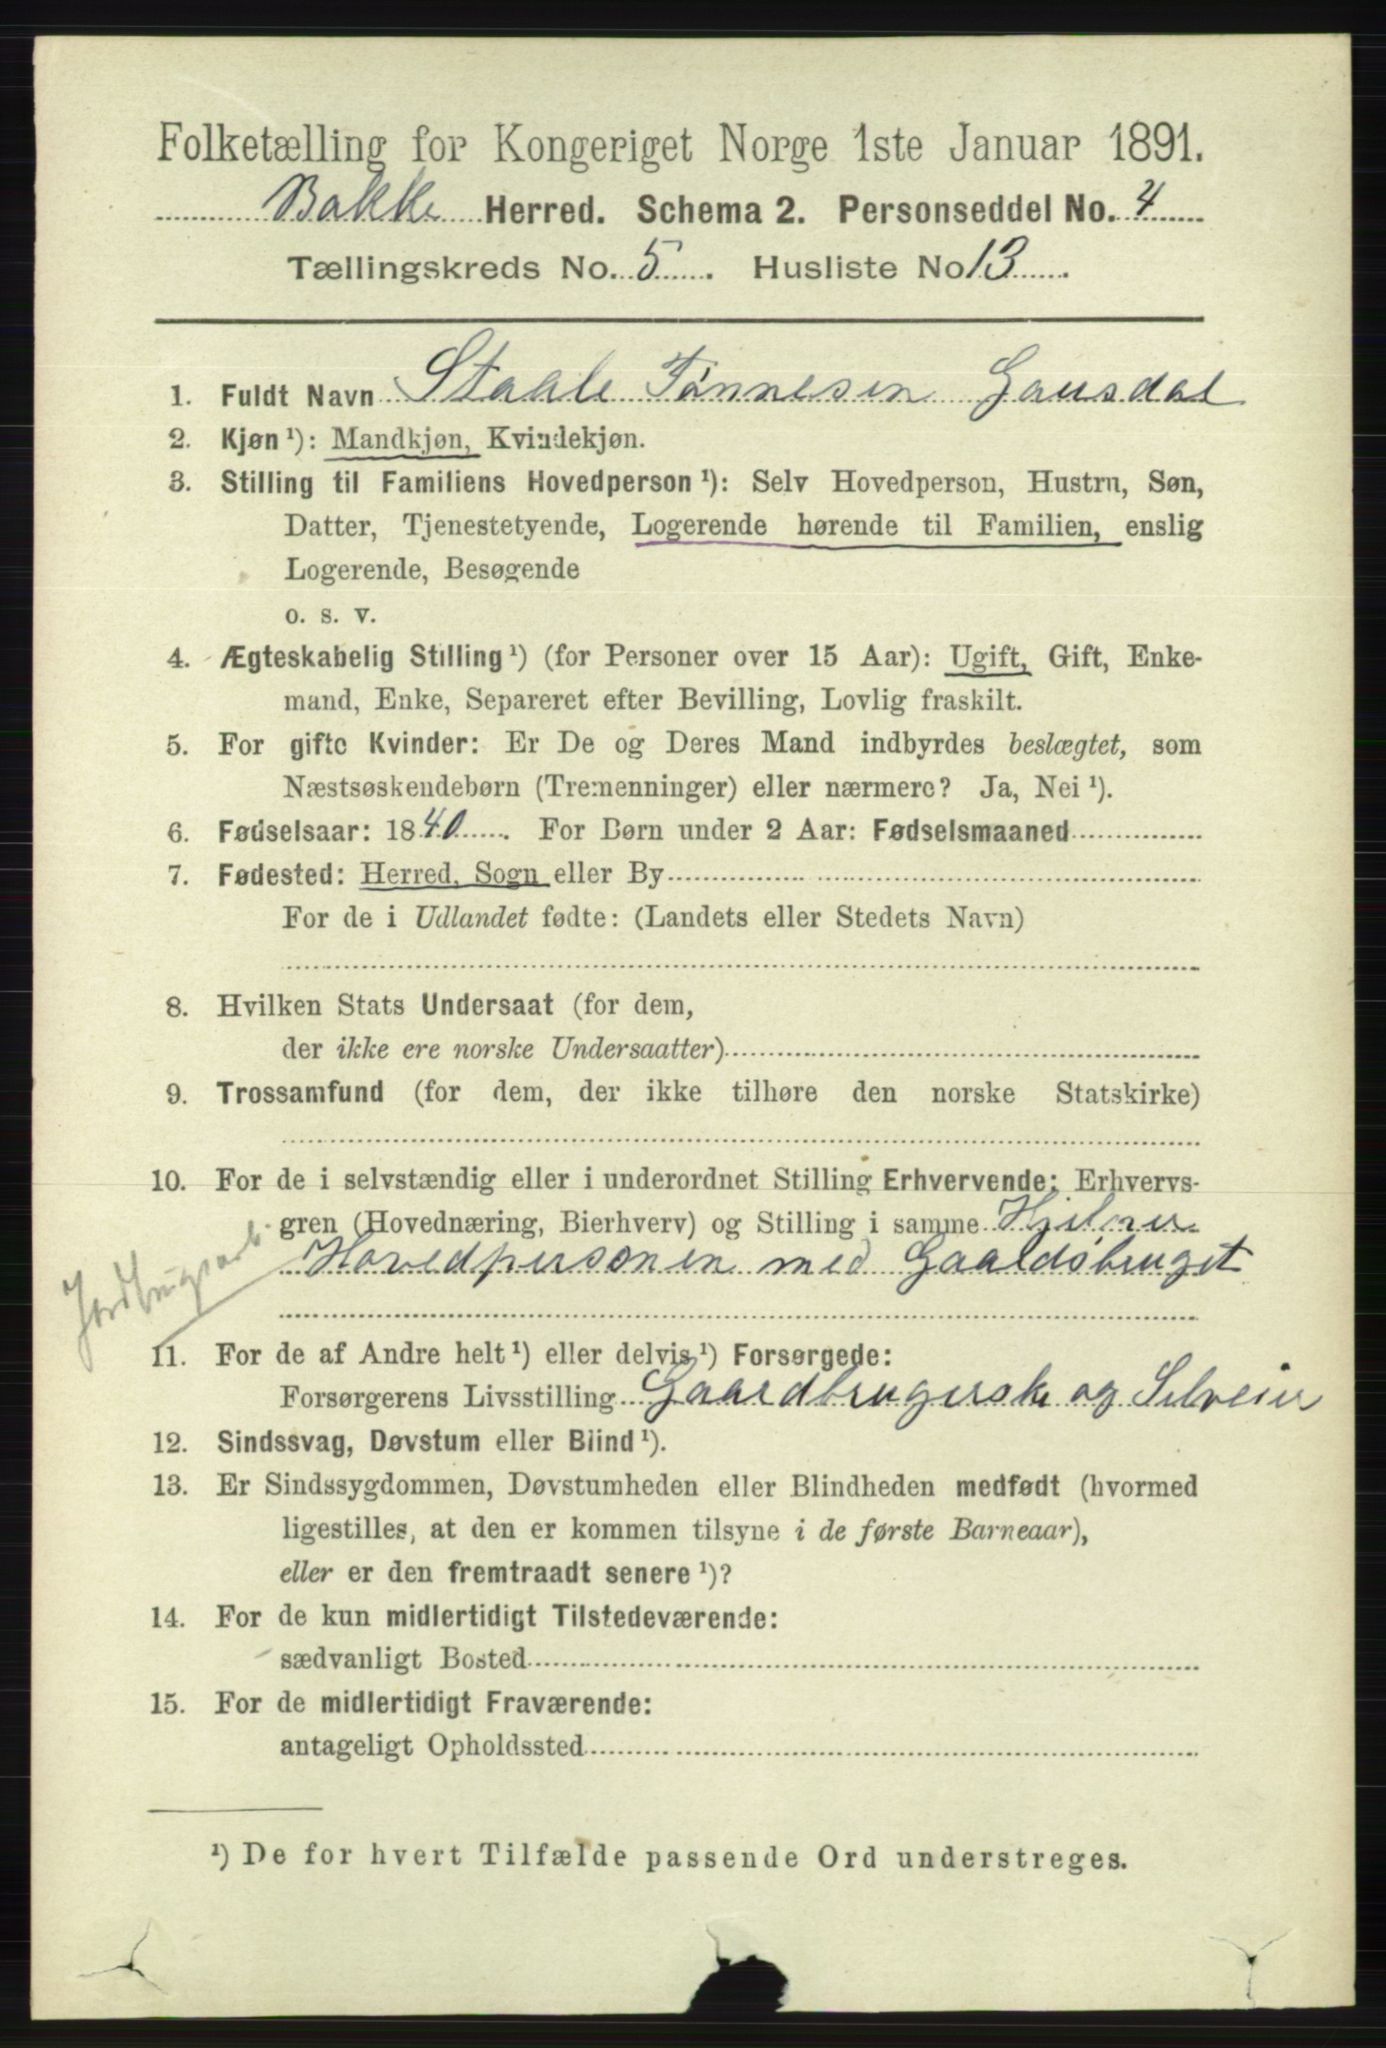 Folketælling for Kongeriget Norge 1ste Januar 1891.
Bakke Herred. Schema 2. Personseddel No. 4
Tællingskreds No. 5. Husliste No 13.
1. Fuldt Navn Staale Tønnesen Gausdal
2. Kjøn ¹): Mandkjøn, Kvindekjøn.
3. Stilling til Familiens Hovedperson ¹): Selv Hovedperson, Hustru, Søn,
Datter, Tjenestetyende, Logerende hørende til Familien, enslig
Logerende, Besøgende
o. s. v.
4. Ægteskabelig Stilling ¹) (for Personer over 15 Aar): Ugift, Gift, Enke-
mand, Enke, Separeret efter Bevilling, Lovlig fraskilt.
5. For gifte Kvinder: Er De og Deres Mand indbyrdes beslægtet, som
Næstsøskendebørn (Tremenninger) eller nærmere? Ja, Nei ¹).
6. Fødselsaar: 1840. For Børn under 2 Aar: Fødselsmaaned
7. Fødested: Herred, Sogn eller By
For de i Udlandet fødte: (Landets eller Stedets Navn)
8. Hvilken Stats Undersaat (for dem,
der ikke ere norske Undersaatter)
9. Trossamfund (for dem, der ikke tilhøre den norske Statskirke)
10. For de i selvstændig eller i underordnet Stilling Erhvervende: Erhvervs-
gren (Hovednæring, Bierhverv) og Stilling i samme Hjelper
Hovedpersonen med Gaardsbruget
Jordbrugsarb.
11. For de af Andre helt ¹) eller delvis ¹) Forsørgede:
Forsørgerens Livsstilling Gaardbrugerske og Selveier
12. Sindssvag, Døvstum eller Blind ¹).
13. Er Sindssygdommen, Døvstumheden eller Blindheden medfødt (hvormed
ligestilles, at den er kommen tilsyne i de første Barneaar),
eller er den fremtraadt senere ¹)?
14. For de kun midlertidigt Tilstedeværende:
sædvanligt Bosted
15. For de midlertidigt Fraværende:
antageligt Opholdssted
¹) De for hvert Tilfælde passende Ord understreges.